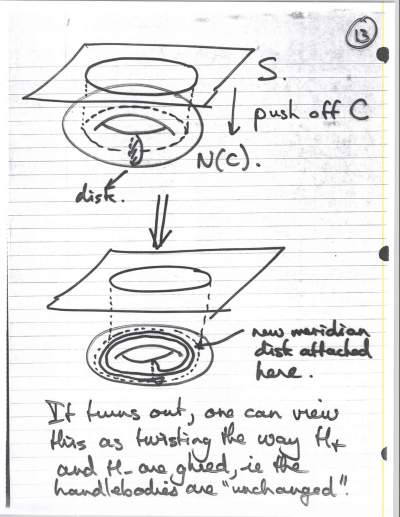 13
S.
push off C
N(C).
disk.
new meridian
disk attached
here.
It turns out, one can view
this as twisting the way H+
and H- are glued, ie the
handlebodies are "unchanged".